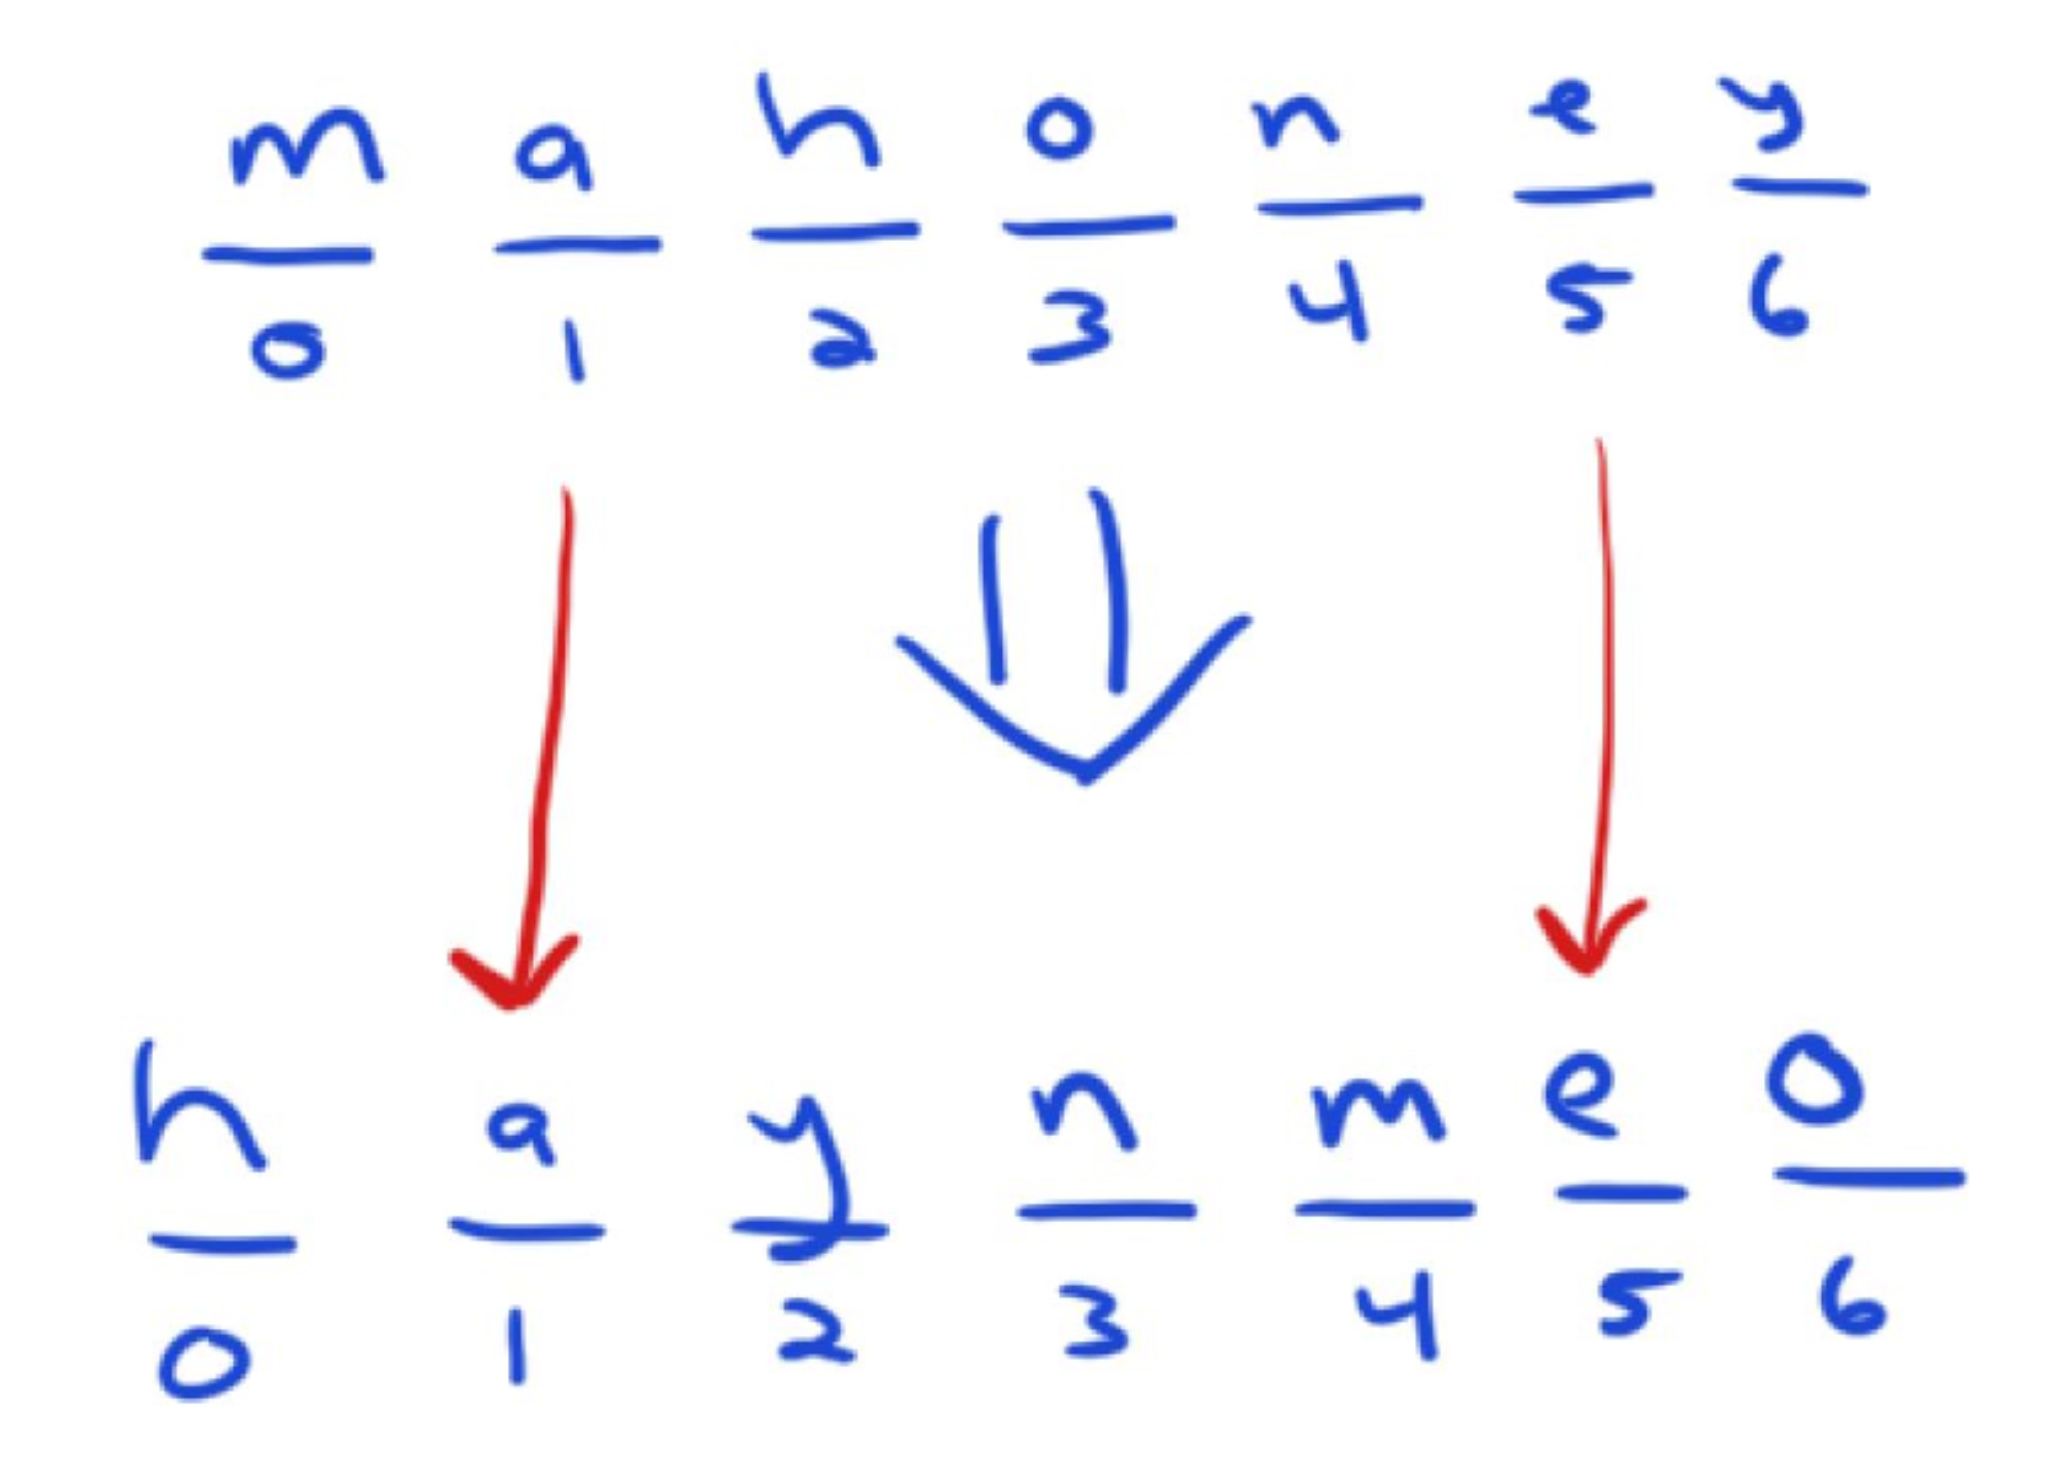 m a h o n e y
0 1 2 3 4 5 6
h a y n m e o
0 1 2 3 4 5 6